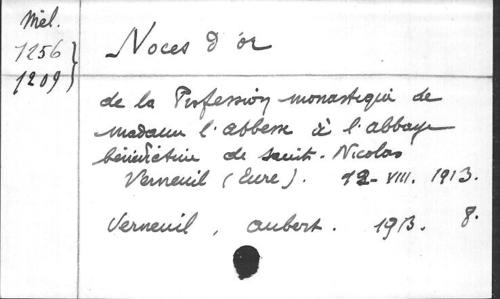 Mél.
1256
1209
Noces d'or
de la Profession monastique de
madame l'abbesse à l'abbaye
bénédictine de saint-Nicolas
Verneuil (Eure). 12-VIII. 1913.
Verneuil, Aubert. 1913. 8.